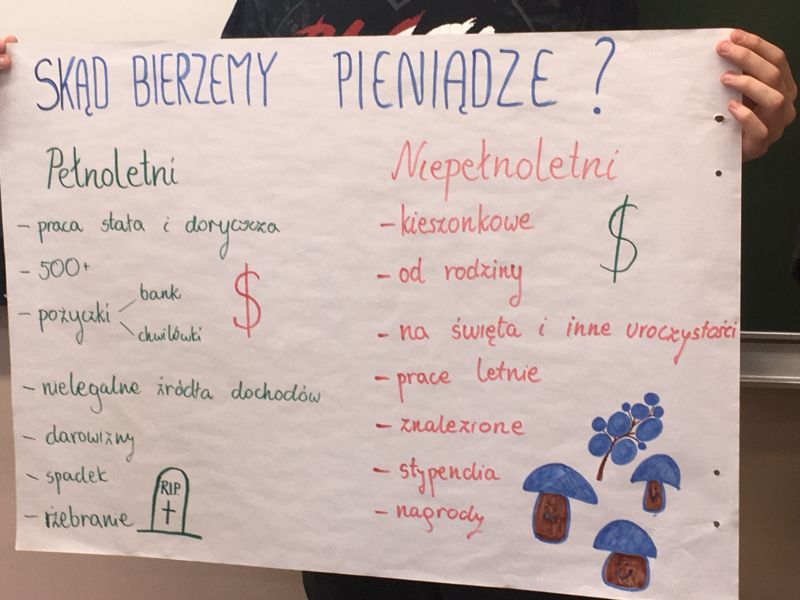 SKĄD BIERZEMY PIENIĄDZE ?
Pełnoletni
- praca stała i dorywcza
- 500+
- pożyczki
bank
chwilówki
$
- nielegalne źródła dochodów
- darowizny
- spadek
RIP
- żebranie
Niepełnoletni
- kieszonkowe
$
- od rodziny
- na święta i inne uroczystości
- prace letnie
- znalezione
- stypendia
- nagrody